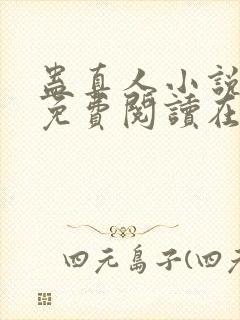 蛊真人小說
免費閱讀在
四元島子(四元